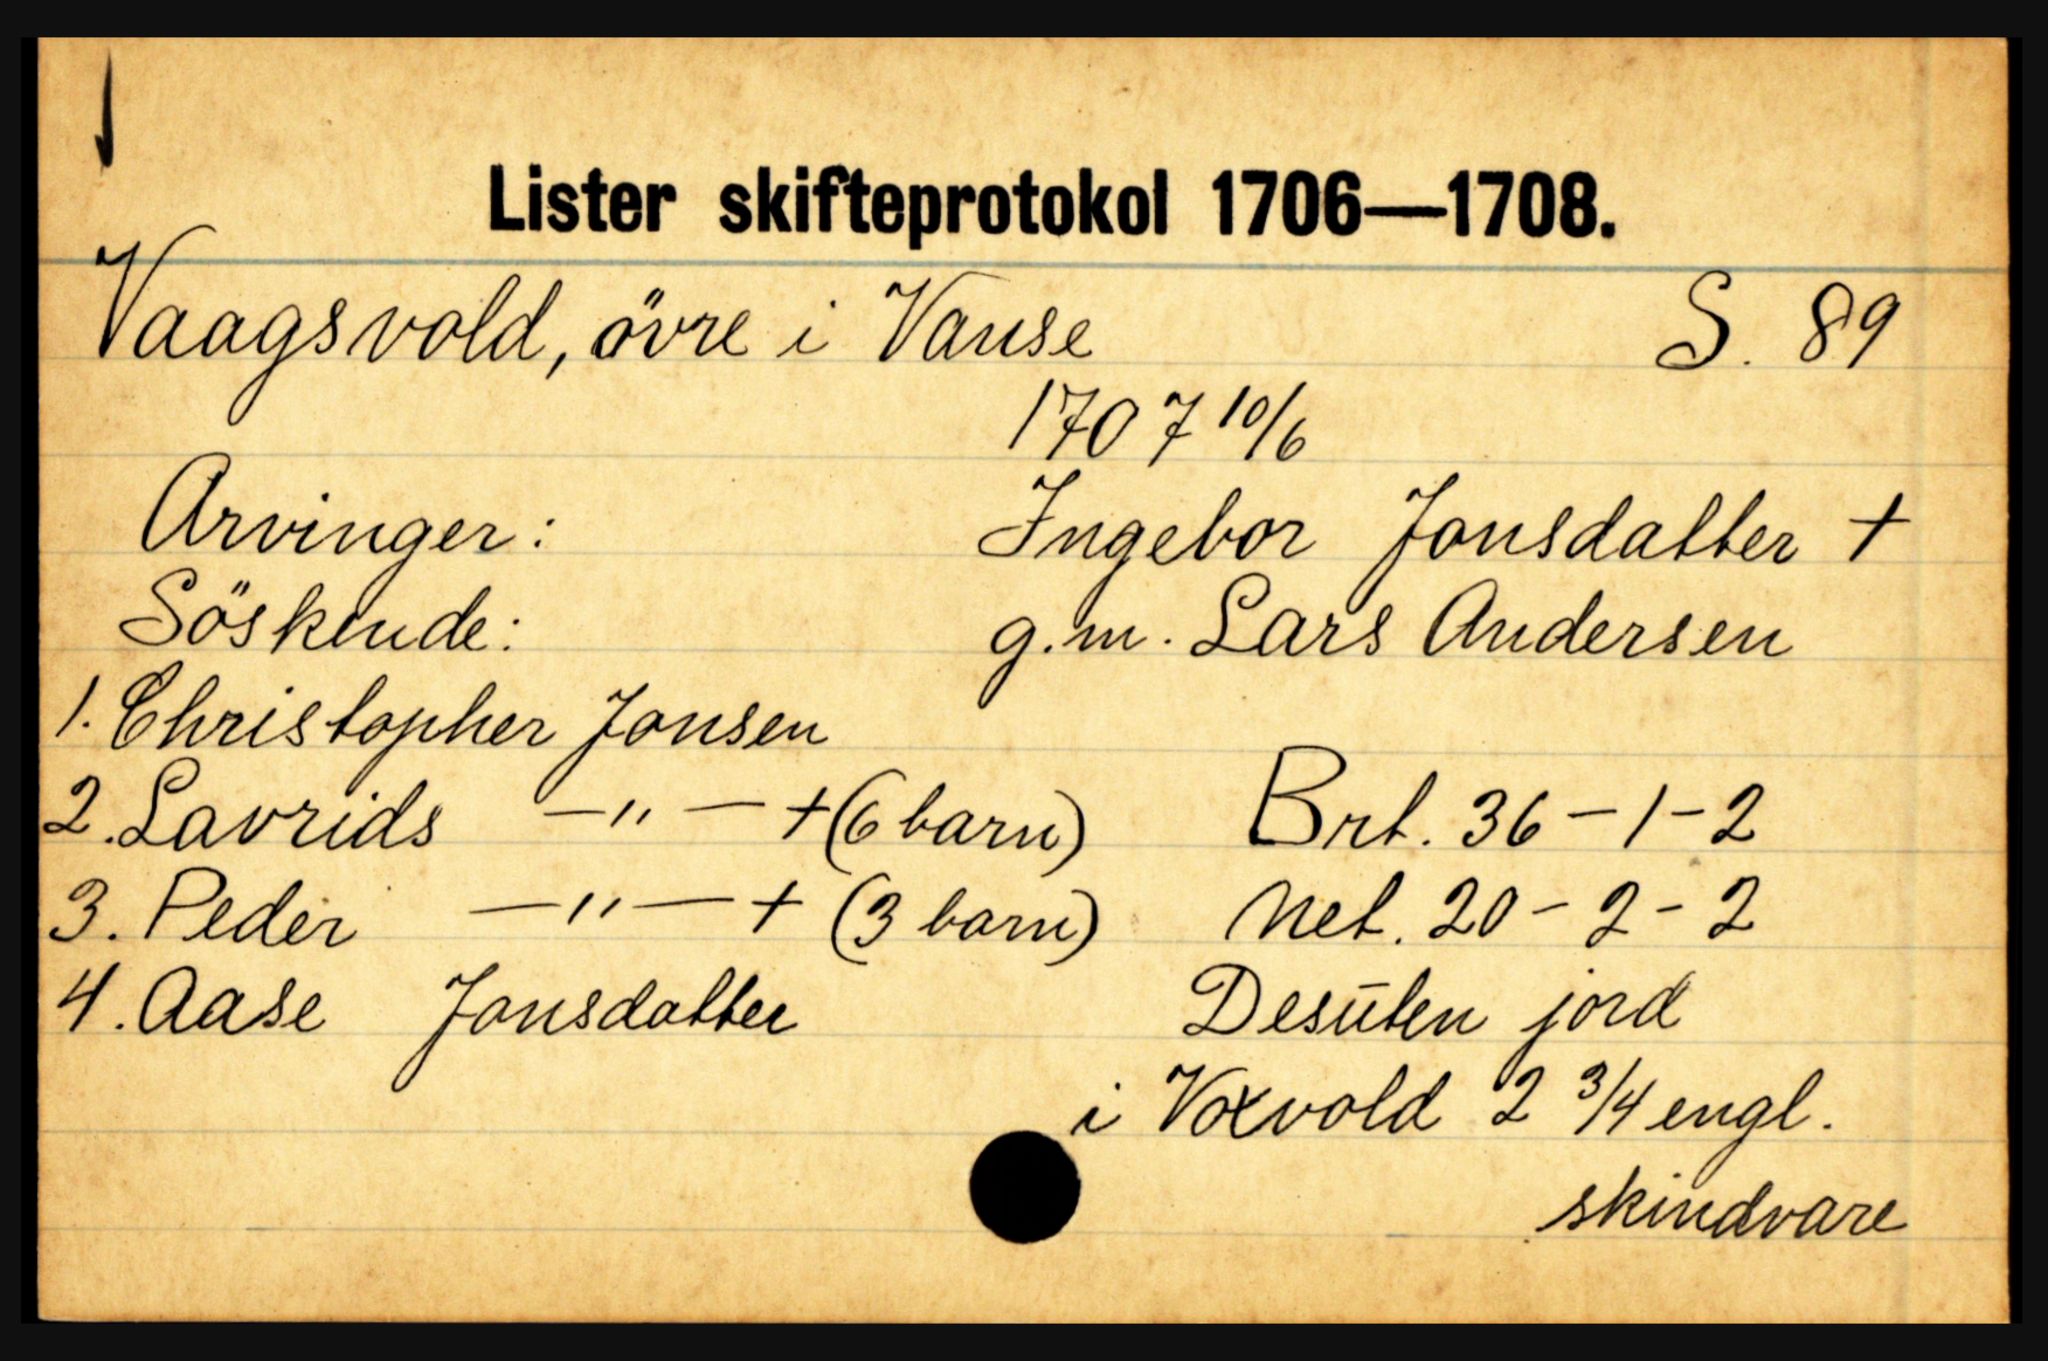 Lister skifteprotokol 1706—1708.
Vaagsvold, övre i Vanse S. 89
1707 10/6
Arvinger: Ingebor Jonsdatter +
Söskende: g.m. Lars Andersen
1. Christopher Jonsen
2. Lavrids —"— + (6 barn) Brt. 36-1-2
3. Peder —"— + (3 barn) Net. 20-2-2
4. Aase Jonsdatter Desūten jord
i Voxvold 2 3/4 engl.
skindvare